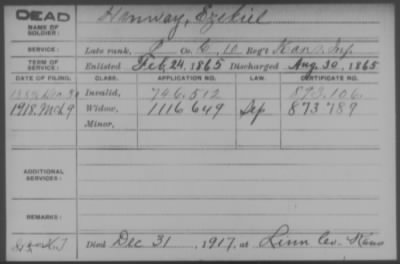 DEAD
NAME OF SOLDIER: Hanway, Ezekiel
SERVICE: Late rank, P Co. C, 10 Reg't Kans. Inf.
TERM OF SERVICE: Enlisted Feb. 24, 1865 Discharged Aug. 30, 1865
DATE OF FILING. CLASS. APPLICATION NO. LAW. CERTIFICATE NO.
Invalid, 746.512 893.106.
1918. Mch 9 Widow, 1116649 873789
Minor,
ADDITIONAL SERVICES:
REMARKS:
Died Dec 31, 1917, at Linn Co. Kans